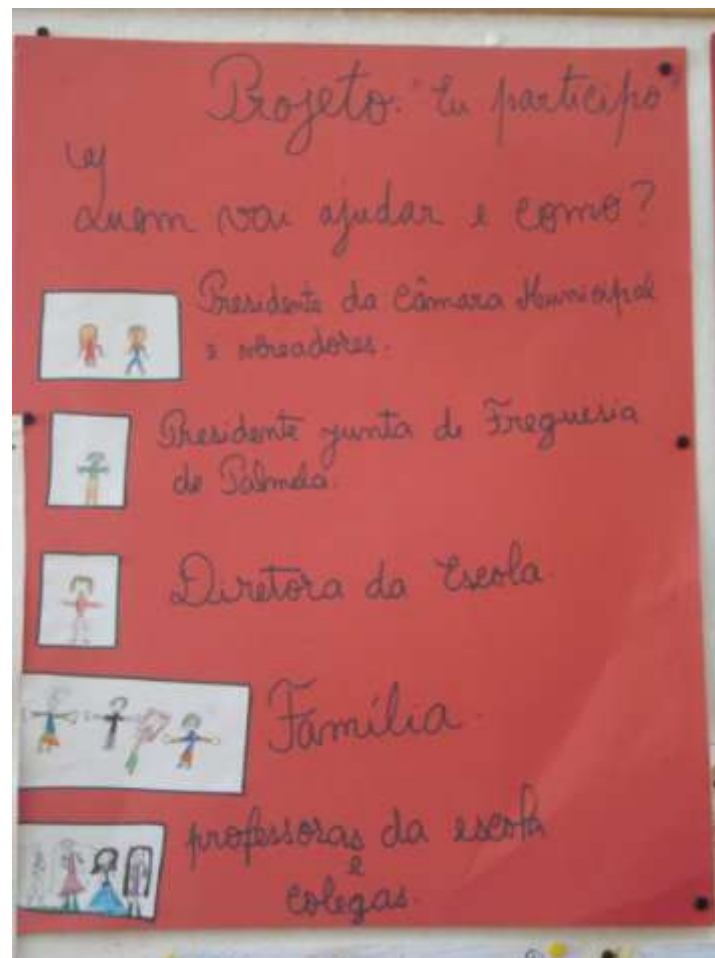 Projeto: "Eu participo"
Quem vai ajudar e como?
Presidente da Câmara Municipal
e vereadores.
Presidente junta de Freguesia
de Palmela.
Diretora da Escola
Família
professoras da escola
e
colegas.